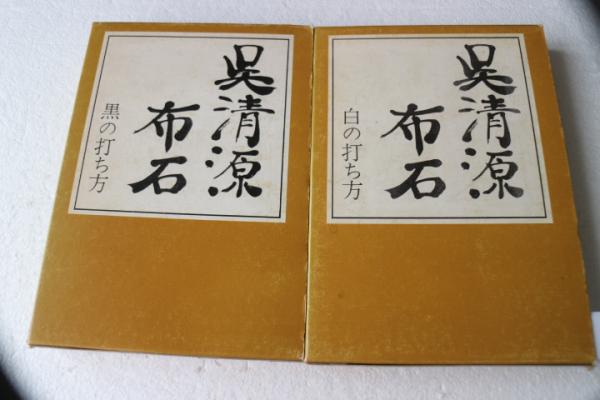 呉清源
布石
黒の打ち方
呉清源
布石
白の打ち方